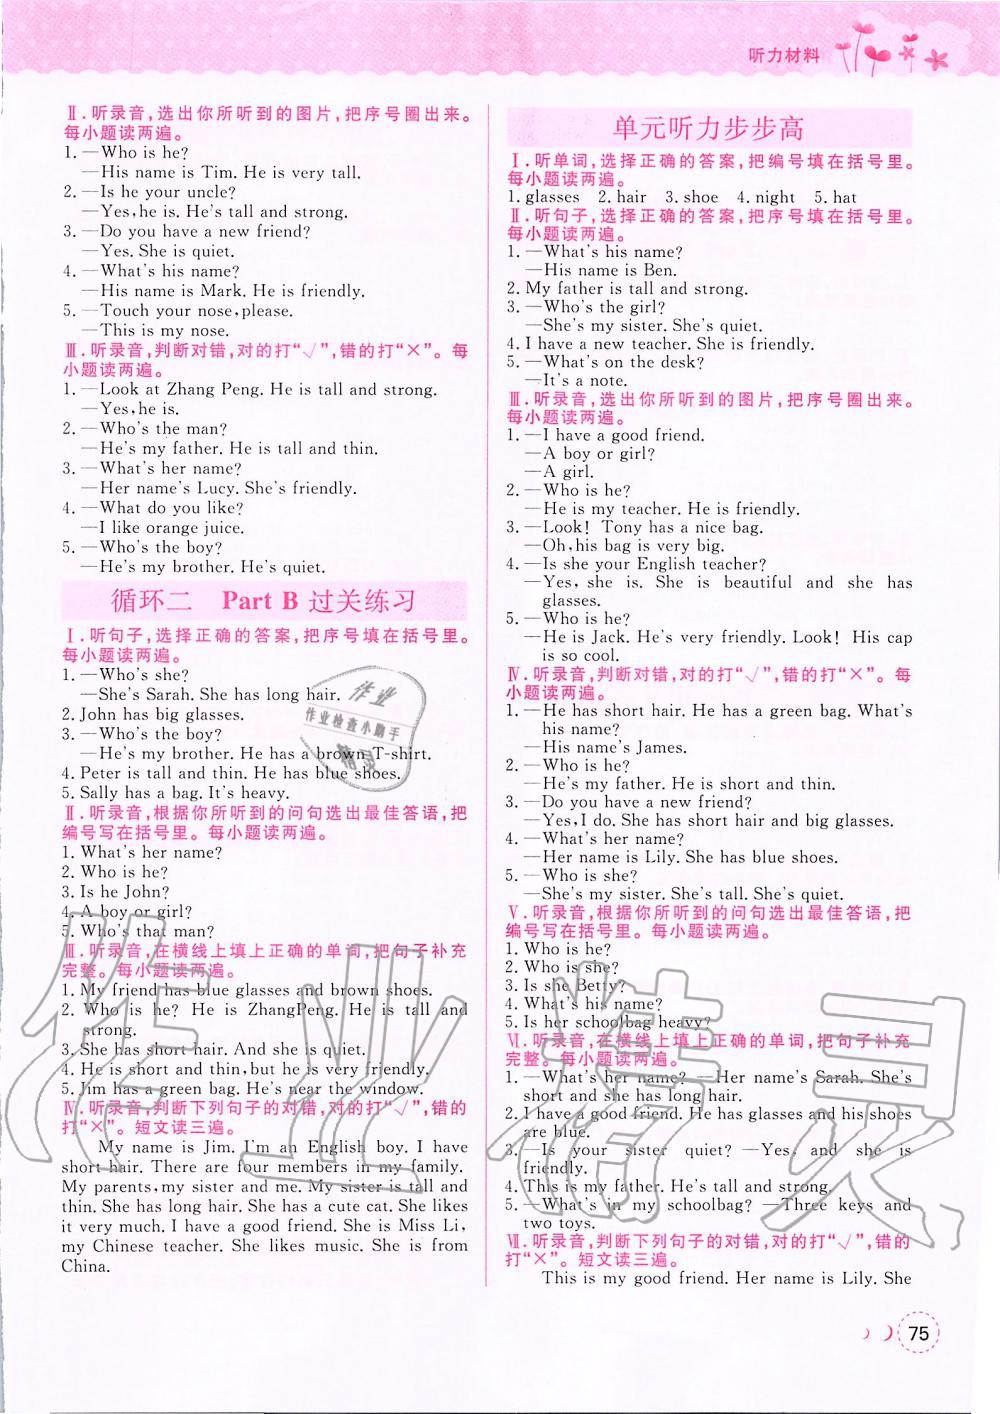 听力材料
Ⅱ.听录音,选出你所听到的图片,把序号圈出来。
每小题读两遍。
1. —Who is he?
—His name is Tim. He is very tall.
2. —Is he your uncle?
—Yes,he is. He's tall and strong.
3. —Do you have a new friend?
—Yes. She is quiet.
4. —What's his name?
—His name is Mark. He is friendly.
5. —Touch your nose,please.
—This is my nose.
Ⅲ.听录音,判断对错,对的打“√”,错的打“×”。每
小题读两遍。
1. —Look at Zhang Peng. He is tall and strong.
—Yes,he is.
2. —Who's the man?
—He's my father. He is tall and thin.
3. —What's her name?
—Her name's Lucy. She's friendly.
4. —What do you like?
—I like orange juice.
5. —Who's the boy?
—He's my brother. He's quiet.
循环二 Part B 过关练习
Ⅰ.听句子,选择正确的答案,把序号填在括号里。
每小题读两遍。
1. —Who's she?
—She's Sarah. She has long hair.
2. John has big glasses.
3. —Who's the boy?
—He's my brother. He has a brown T-shirt.
4. Peter is tall and thin. He has blue shoes.
5. Sally has a bag. It's heavy.
Ⅱ.听录音,根据你所听到的问句选出最佳答语,把
编号写在括号里。每小题读两遍。
1. What's her name?
2. Who is he?
3. Is he John?
4. A boy or girl?
5. Who's that man?
Ⅲ.听录音,在横线上填上正确的单词,把句子补充
完整。每小题读两遍。
1. My friend has blue glasses and brown shoes.
2. Who is he? He is ZhangPeng. He is tall and
strong.
3. She has short hair. And she is quiet.
4. He is short and thin,but he is very friendly.
5. Jim has a green bag. He's near the window.
Ⅳ.听录音,判断下列句子的对错,对的打“√”,错的
打“×”。短文读三遍。
My name is Jim. I'm an English boy. I have
short hair. There are four members in my family.
My parents,my sister and me. My sister is tall and
thin. She has long hair. She has a cute cat. She likes
it very much. I have a good friend. She is Miss Li,
my Chinese teacher. She likes music. She is from
China.
单元听力步步高
Ⅰ.听单词,选择正确的答案,把编号填在括号里。
每小题读两遍。
1. glasses 2. hair 3. shoe 4. night 5. hat
Ⅱ.听句子,选择正确的答案,把序号填在括号里。
每小题读两遍。
1. —What's his name?
—His name is Ben.
2. My father is tall and strong.
3. —Who's the girl?
—She's my sister. She's quiet.
4. I have a new teacher. She is friendly.
5. —What's on the desk?
—It's a note.
Ⅲ.听录音,选出你所听到的图片,把序号圈出来。
每小题读两遍。
1. —I have a good friend.
—A boy or girl?
—A girl.
2. —Who is he?
—He is my teacher. He is friendly.
3. —Look! Tony has a nice bag.
—Oh,his bag is very big.
4. —Is she your English teacher?
—Yes, she is. She is beautiful and she has
glasses.
5. —Who is he?
—He is Jack. He's very friendly. Look! His cap
is so cool.
Ⅳ.听录音,判断对错,对的打“√”,错的打“×”。每
小题读两遍。
1. —He has short hair. He has a green bag. What's
his name?
—His name's James.
2. —Who is he?
—He's my father. He is short and thin.
3. —Do you have a new friend?
—Yes,I do. She has short hair and big glasses.
4. —What's her name?
—Her name is Lily. She has blue shoes.
5. —Who is she?
—She's my sister. She's tall. She's quiet.
Ⅴ.听录音,根据你所听到的问句选出最佳答语,把
编号写在括号里。每小题读两遍。
1. Who is he?
2. Who is she?
3. Is she Betty?
4. What's his name?
5. Is her schoolbag heavy?
Ⅵ.听录音,在横线上填上正确的单词,把句子补充
完整。每小题读两遍。
1. —What's her name? —Her name's Sarah. She's
short and she has long hair.
2. I have a good friend. He has glasses and his shoes
are blue.
3. —Is your sister quiet? —Yes, and she is
friendly.
4. This is my father. He is tall and strong.
5. —What's in my schoolbag? —Three keys and
two toys.
Ⅶ.听录音,判断下列句子的对错,对的打“√”,错的
打“×”。短文读三遍。
This is my good friend. Her name is Lily. She
75
作业
作业检查小助手
精灵
作业精灵